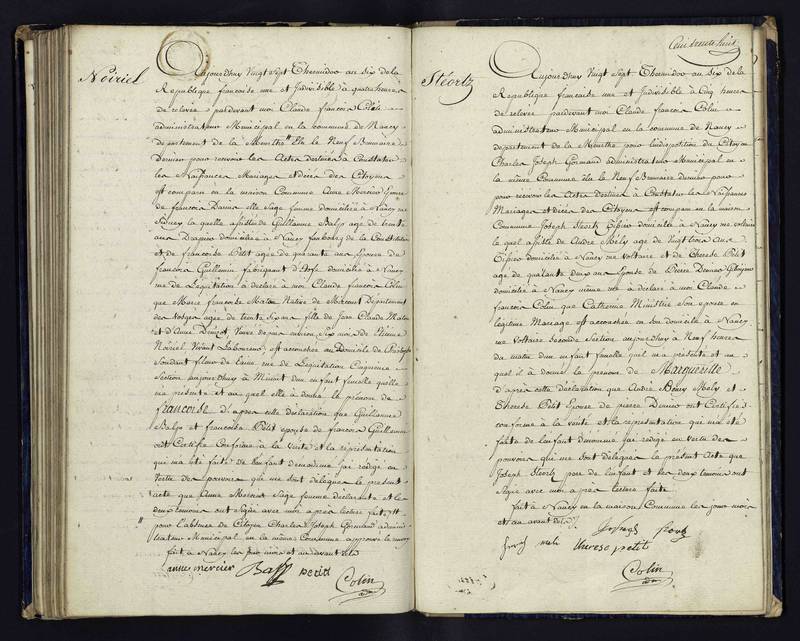 Noiriel
Aujourdhuy Vingt sept Thermidor an six de la
Republique francoise une et Indivisible à quatre heures
de relevée pardevant moi Claude francois Colin
administrateur Municipal en la commune de Nancy
departement de la Meurthe" Elu le Neuf Brumaire
Dernier pour recevoir les Actes destinés à Constater
les Naissances Mariages et décès des Citoyens
est comparu en la maison Commune Anne Mercier Epouse
de francois Sage femme domiciliée à Nancy rue
la quelle assistée de Guillaume Balp agé de trente
ans Drapier domicilié à Nancy faubourg de la Constitution
et de francoise Petit agée de quarante ans Epouse de
francois Guillemin fabriquant domicilié à Nancy
rue de Legislation à déclaré à moi Claude francois Colin
que Marie francoise Maton Native de Mirecourt Departement
des Vosges agée de trente six ans fille de Jean Claude Maton
et d'Anne Veuve depuis environ six mois de Etienne
Noiriel Vivant Laboureur, est accouchée au Domicile de
rue de Legislation Cinquieme
Section aujourdhuy à Minuit d'un enfant femelle quelle
m'a présenté et au quel elle à donné le prénom de
francoise d'après cette déclaration que Guillaume
Balp et francoise Petit epouse de francois Guillemin
ont Certifié Conforme à la Verité et la représentation
qui m'a été faite de l'enfant denommé j'ai rédigé en
Vertu des pouvoirs qui me sont délégués le présent
acte que Anne Mercier Sage femme déclarante et les
deux temoins ont Signé avec moi après lecture faite,"
" pour l'absence du Citoyen Charles Joseph Gormand adminis-
trateur Municipal en la même Commune approuvé le renvoy
fait à Nancy les jour mois et an avant dits
anne mercier Balp petit
Colin
Cent trente huit
Stéortz
Aujourdhuy Vingt Sept Thermidor an six de la
Republique francaise une et Indivisible à Cinq heures
de relevée pardevant moi Claude francois Colin
administrateur Municipal en la commune de Nancy
departement de la Meurthe pour l'indisposition du Citoyen
Charles Joseph Gormand administrateur Municipal en
la même Commune élu le Neuf Brumaire dernier pour
pour recevoir les Actes destinés à Constater les Naissances
Mariages et décès des Citoyens est comparu en la maison
Commune Joseph Steortz domicilié à Nancy rue voltaire
le quel assisté de André Mély agé de vingt trois ans
domicilié à Nancy rue Voltaire et de Therese Petit
agée de quarante deux ans Epouse de Pierre Citoyens
domicilié à Nancy même rue à declaré à moi Claude
francois Colin que Catherine son epouse en
legitime Mariage est accouchée en son domicile à Nancy
rue Voltaire seconde Section aujourdhuy à Neuf heures
du matin d'un enfant femelle quel m'a présenté et au
quel il à donné le prenom de Marguerite
d'après cette déclaration que André Mely et
Therese Petit Epouse de pierre ont Certifié
conforme à la verité et la representation qui m'a été
faite de l'enfant denommé j'ai redigé en vertu des
pouvoirs qui me sont délégués le présent Acte que
Joseph Steortz pere de l'enfant et les deux temoins ont
Signé avec moi après lecture faite
fait à Nancy en la maison Commune les jour mois
et an avant dits
Joseph Steortz
meli therese petit
Colin